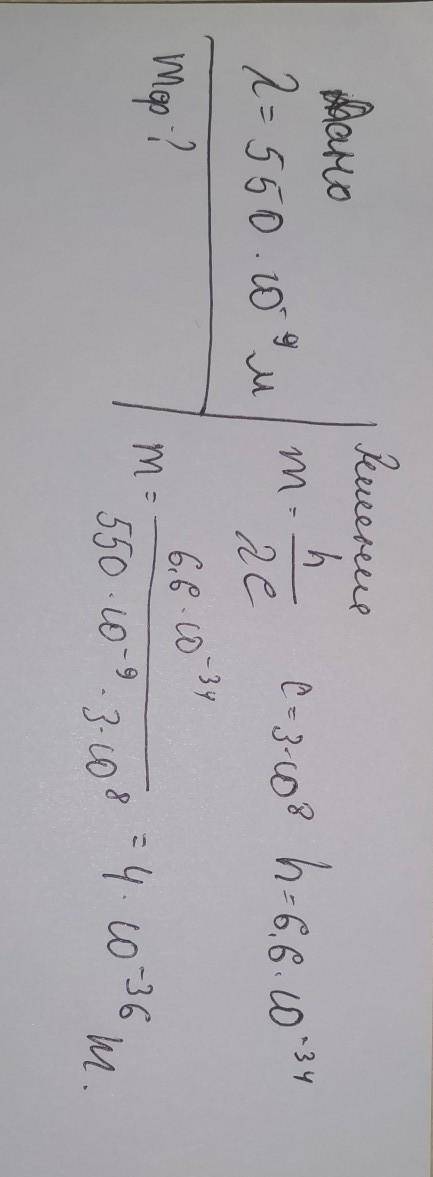 Дано
λ = 550 · 10⁻⁹ м
mф - ?
Решение
m = h / λc c = 3 · 10⁸ h = 6,6 · 10⁻³⁴
m = 6,6 · 10⁻³⁴ / 550 · 10⁻⁹ · 3 · 10⁸ = 4 · 10⁻³⁶ м.